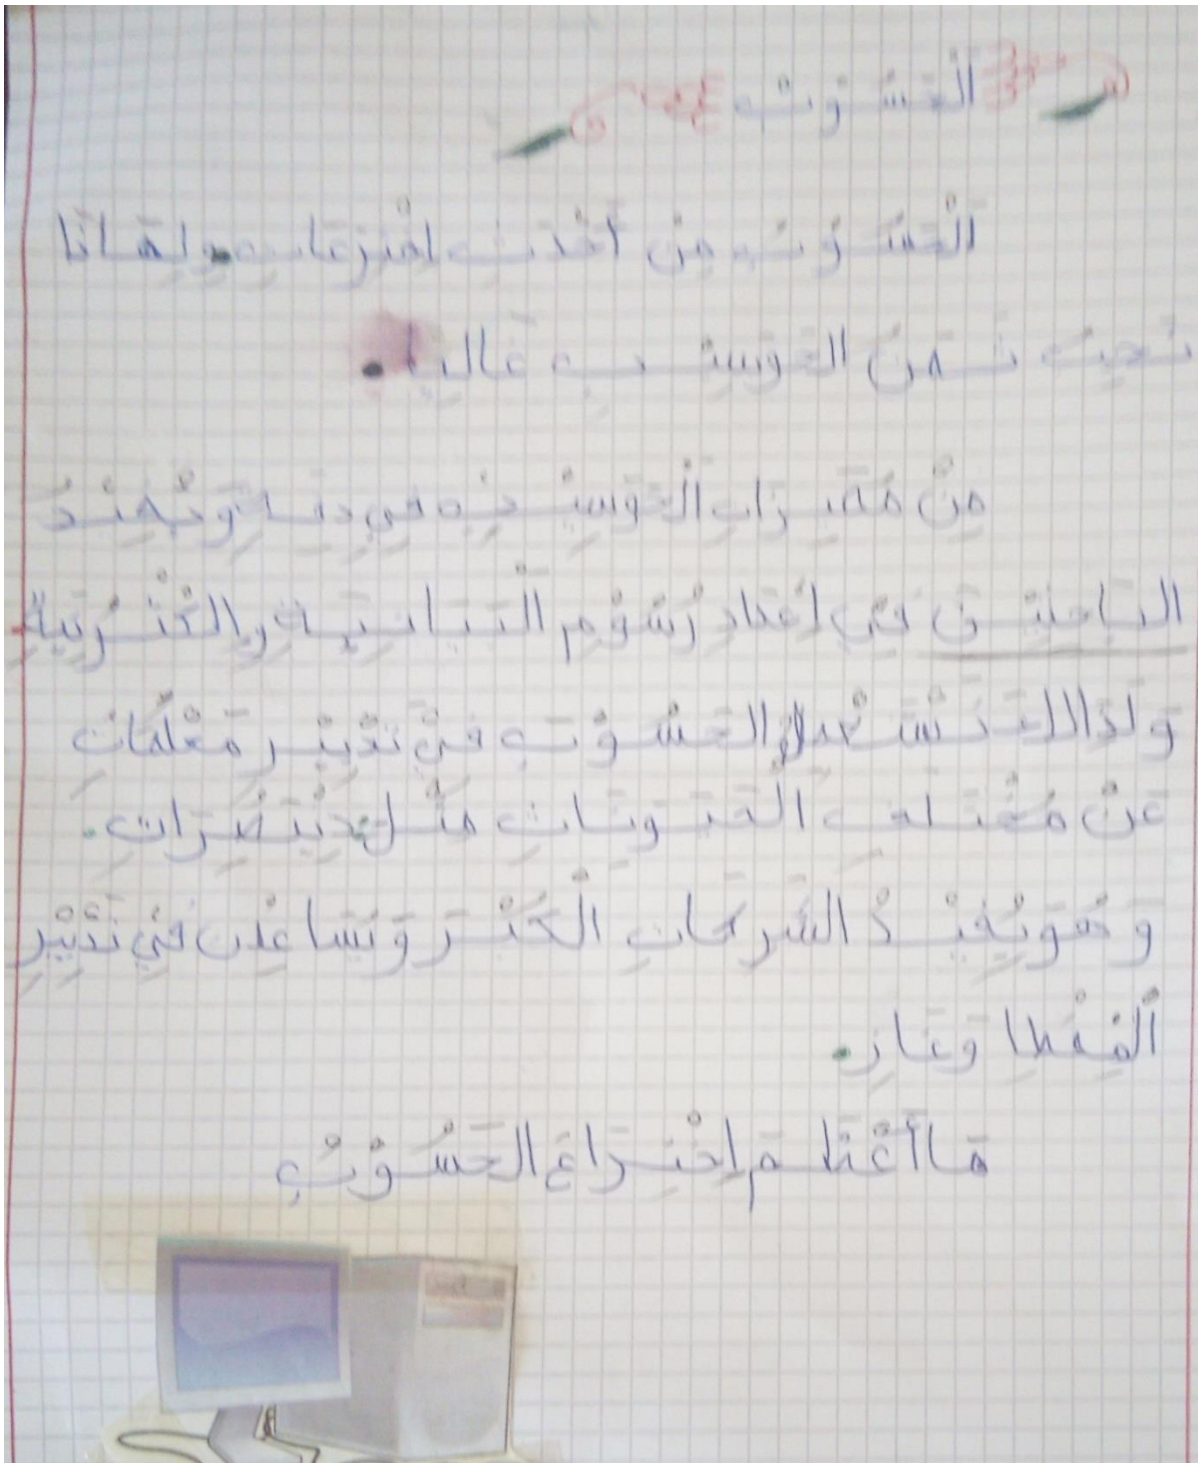 الْحَسُوبْ
الْحَسُوبُ مِنْ أَحْدَثِ اخْتِرْعَاتِ ولهَاذَا
نَجِدُ ثَمَنُ الحَوَسِبِ غَالِيا.
مِنْ مُمَيِزَاتِ الْحَوَسِبْ فِي دِقَة وَيُفِيْدُ
البَاحِثِيْنَ فِي إعْدَادِ رُسُوْمِ الْبَيَانِيَةِ وَالكَرْتُبِيَةِ
وَلِذَالكَ نَسْتَخْدِمُ الحَسُوْبَ فِيْ تَدْبِيْرِ مَعْلُمَاتِ
عَنْ مُخْتَلَفِ الْحَيَوَنَاتِ مِثْلِ
وَ هُوَ يُفِيْدُ الشَرِكَاتِ الْكُبْرَ وَيُسَاعِدُ فِيْ تَدْبِيْرِ
مَا أَعْظَمَ اِخْتِرَاعَ الحَسُوْبُ